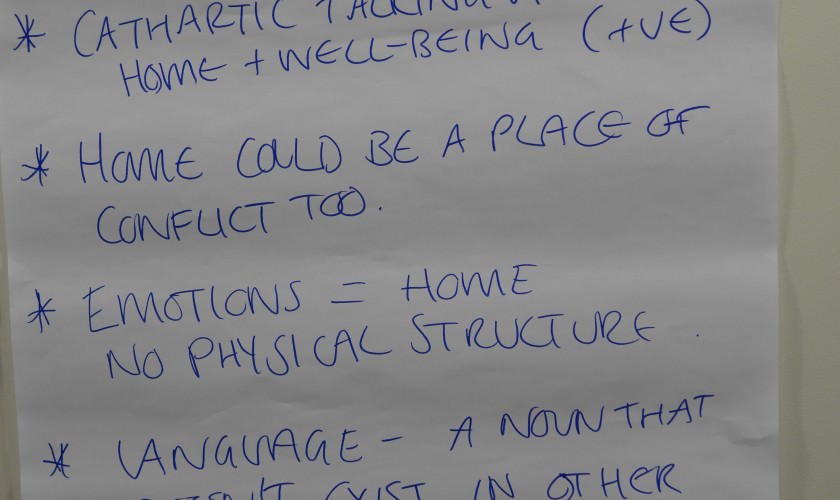 * CATHARTIC TALKING
HOME + WELL-BEING (+VE)
* HOME COULD BE A PLACE OF
CONFLICT TOO.
* EMOTIONS = HOME
NO PHYSICAL STRUCTURE.
* LANGUAGE - A NOUN THAT
DOESN'T EXIST IN OTHER